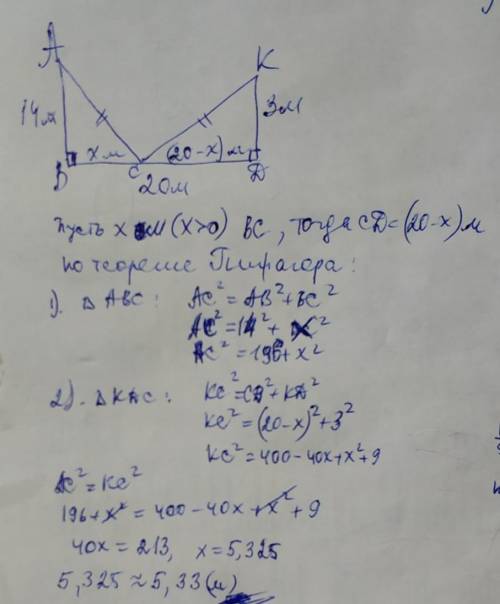 A K
14м 3м
x м (20-x) м
B C D
20м
Пусть x м (x>0) BC, тогда CD=(20-x) м
по теореме Пифагора:
1). △ABC: AC²=AB²+BC²
AC²=14²+X²
AC²=196+x²
2). △KDC: KC²=CD²+KD²
KC²=(20-x)²+3²
KC²=400-40x+x²+9
AC²=KC²
196+x²=400-40x+x²+9
40x=213, x=5,325
5,325≈5,33(м)